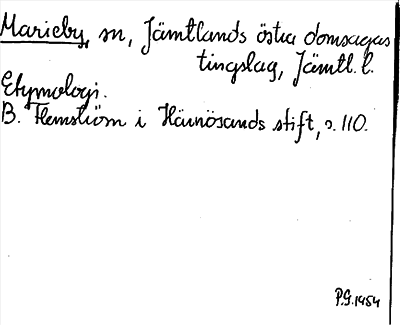 Marieby, sn, Jämtlands östra domsagas
tingslag, Jämtl. l.
Etymologi.
B. Flemström i Härnösands stift, s. 110.
P.G. 1454